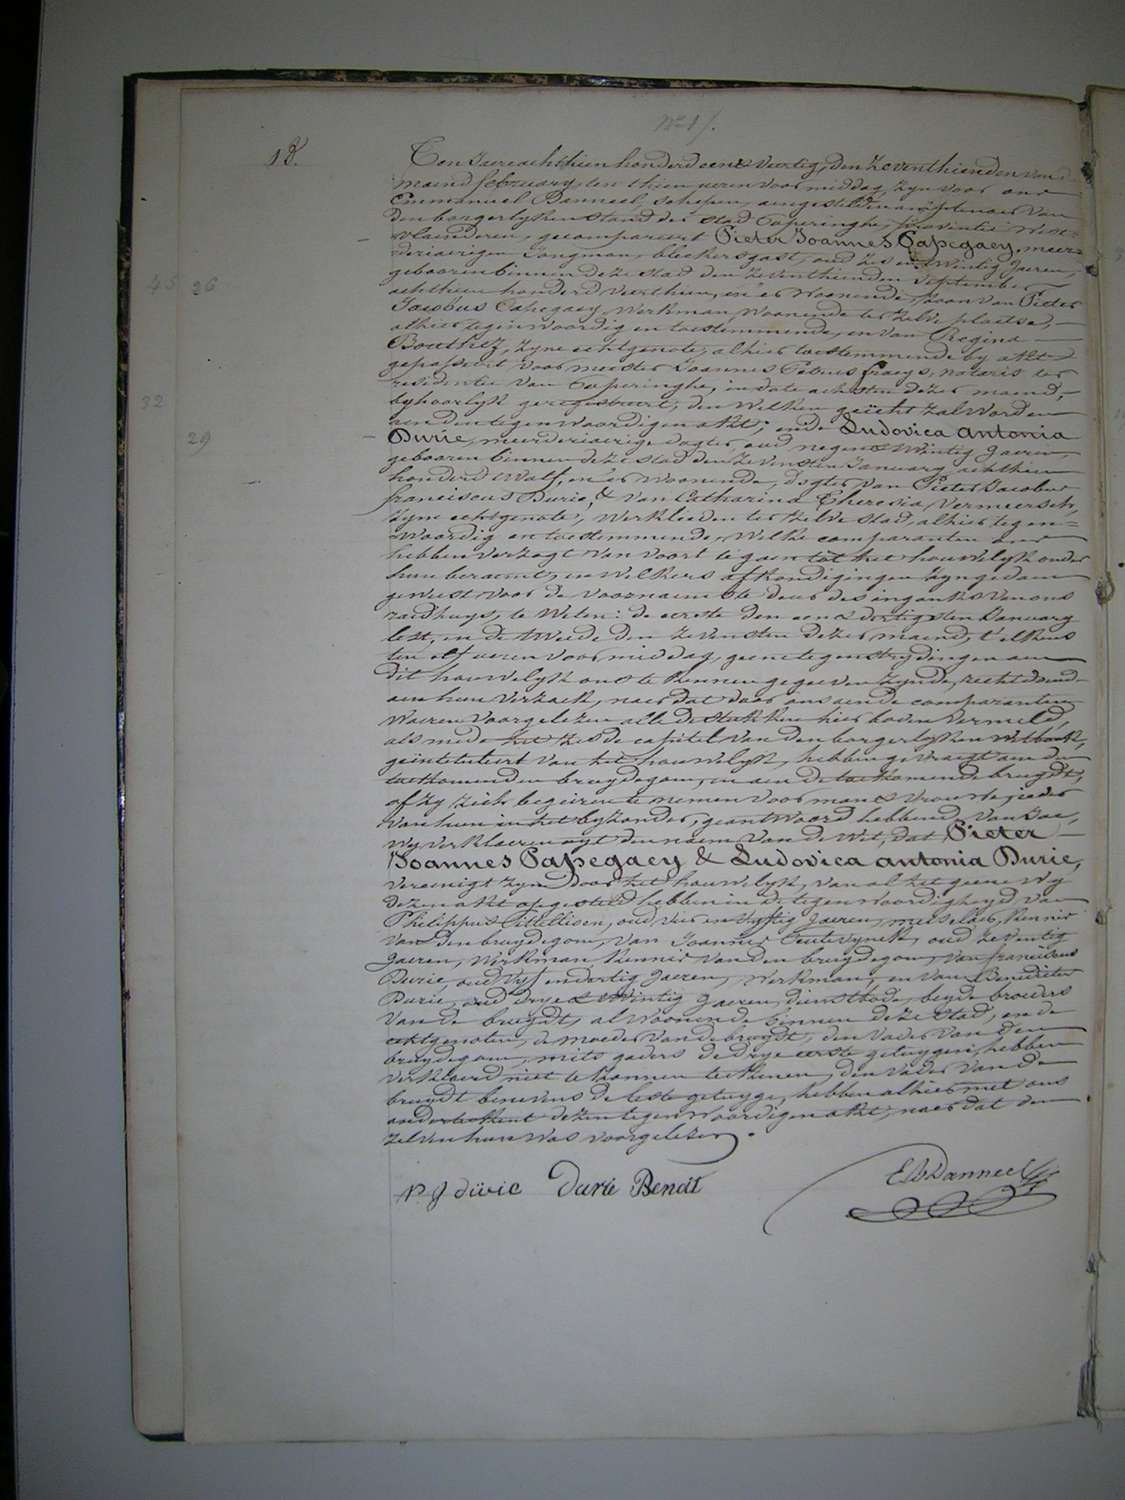 N° 18/.
18.
Ten Jaere achthien honderd een & veertig, den zeventhienden van de
maend february, ten thien ueren voormiddag, zyn voor ons
Emmanuel Danneel, schepen, aengestelden amptenaer van
den borgerlyken stand der stad Poperinghe, provintie West-
vlaenderen, gecompareert Pieter Joannes Papegaey, meer-
deriaerigen Jongman, bleekersgast, oud zes en twintig Jaeren,
gebooren binnen deze stad den zeventhienden September
45 26
achthien honderd veerthien, en er woonende, zoon van Pieter
Jacobus Papegaey, werkman, woonende ter zelve plaetse,
alhier tegenwoordig en toestemmende, en van Regina
Bouthez, zyne echtgenote, alhier toestemmende by akte
gepasseert voor meester Joannes Petrus Graeys, notaris ter
residentie van Poperinghe, in date achtsten dezer maend,
32
behoorlyk geregistreert, den welken gehecht zal worden
aen den tegenwoordigen akt; ende Ludovica Antonia
29
Durie, meerderiaerige dogter, oud negen & twintig Jaeren,
gebooren binnen deze stad den zevensten January achthien
honderd twalf, en er woonende, dogter van Pieter Jacobus
franciscus Durie, & van Catharina Theresia Vermeersch,
zyne echtgenote, werklieden ter zelve stad, alhier tegen-
woordig en toestemmende, Welke comparanten ons
hebben verzogt van voort te gaen tot het houwelyk onder
hun beraemt, en welkers afkondigingen zyn gedaen
geweest voor de voornaemste deur des ingangs van ons
raedhuys, te weten: de eerste den een & dertigsten January
lest, en de tweede den zevensten dezer maend, t'elkens
ten elf ueren voormiddag, geene tegenstrydingen aen
dit houwelyk ons te kennen gegeven zynde, rechtdoende
aen hun verzoek, naer dat door ons aen de comparanten
waeren voorgelezen alle de stukken hier boven vermeld,
als mede het zesde capitel van den borgerlyken wetboek,
geintituleert van het houwelyk, hebben gevraegt aen den
toekomenden bruydegom, en aen de toekomende bruydt,
of zy zich begeiren te nemen voor man & vrouwe; ieder
van hun in het byzonder, geantwoord hebbende van Jae,
wy verklaeren uyt den naem van de wet, dat Pieter
Joannes Papegaey & Ludovica Antonia Durie,
vereenigt zyn door het houwelyk, van al het geene wy
dezen akt opgesteld hebben in de tegenwoordigheyd van
Philippus oud vier en vyftig Jaeren, metselaer, kennis
van den bruydegom, van Joannes oud zeventig
Jaeren, werkman kennis van den bruydegom, van franciscus
Durie, oud vyf en dertig Jaeren, werkman, en van Benedictus
Durie, oud drye & twintig Jaeren, dienstbode, beyde broeders
van de bruydt, al woonende binnen deze stad, en de
echtgenoten, de moeder van de bruydt, den vader van den
bruydegom, mits gaders de drye eerste getuygen, hebben
verklaerd niet te konnen teekenen, den vader van de
bruydt benevens de leste getuyge, hebben alhier met ons
onderteekent dezen tegenwoordigen akt, naer dat den
zelven hun was voorgelezen.
P. J durie Durie Bendt EDanneel